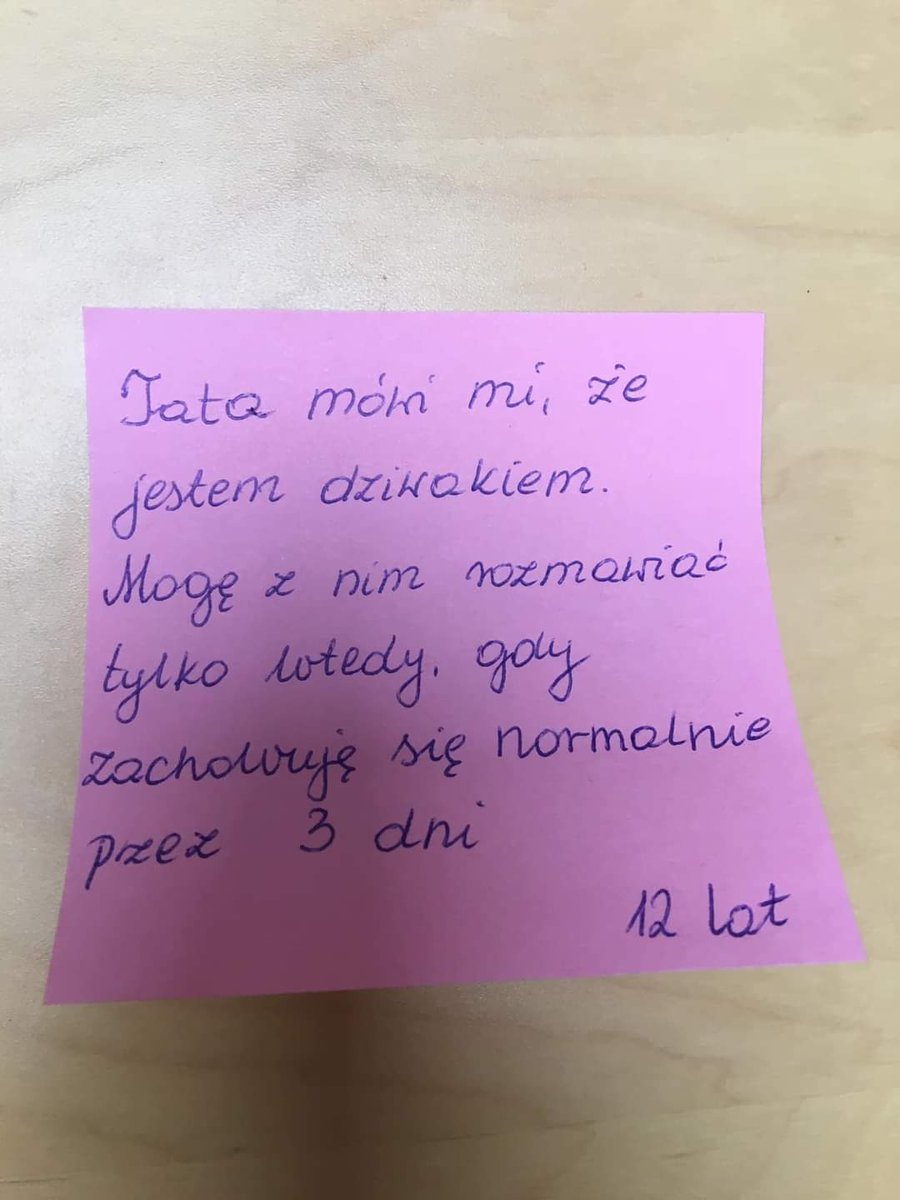 Tata mówi mi, że
jestem dziwakiem.
Mogę z nim rozmawiać
tylko wtedy, gdy
zachowuję się normalnie
przez 3 dni
12 lat